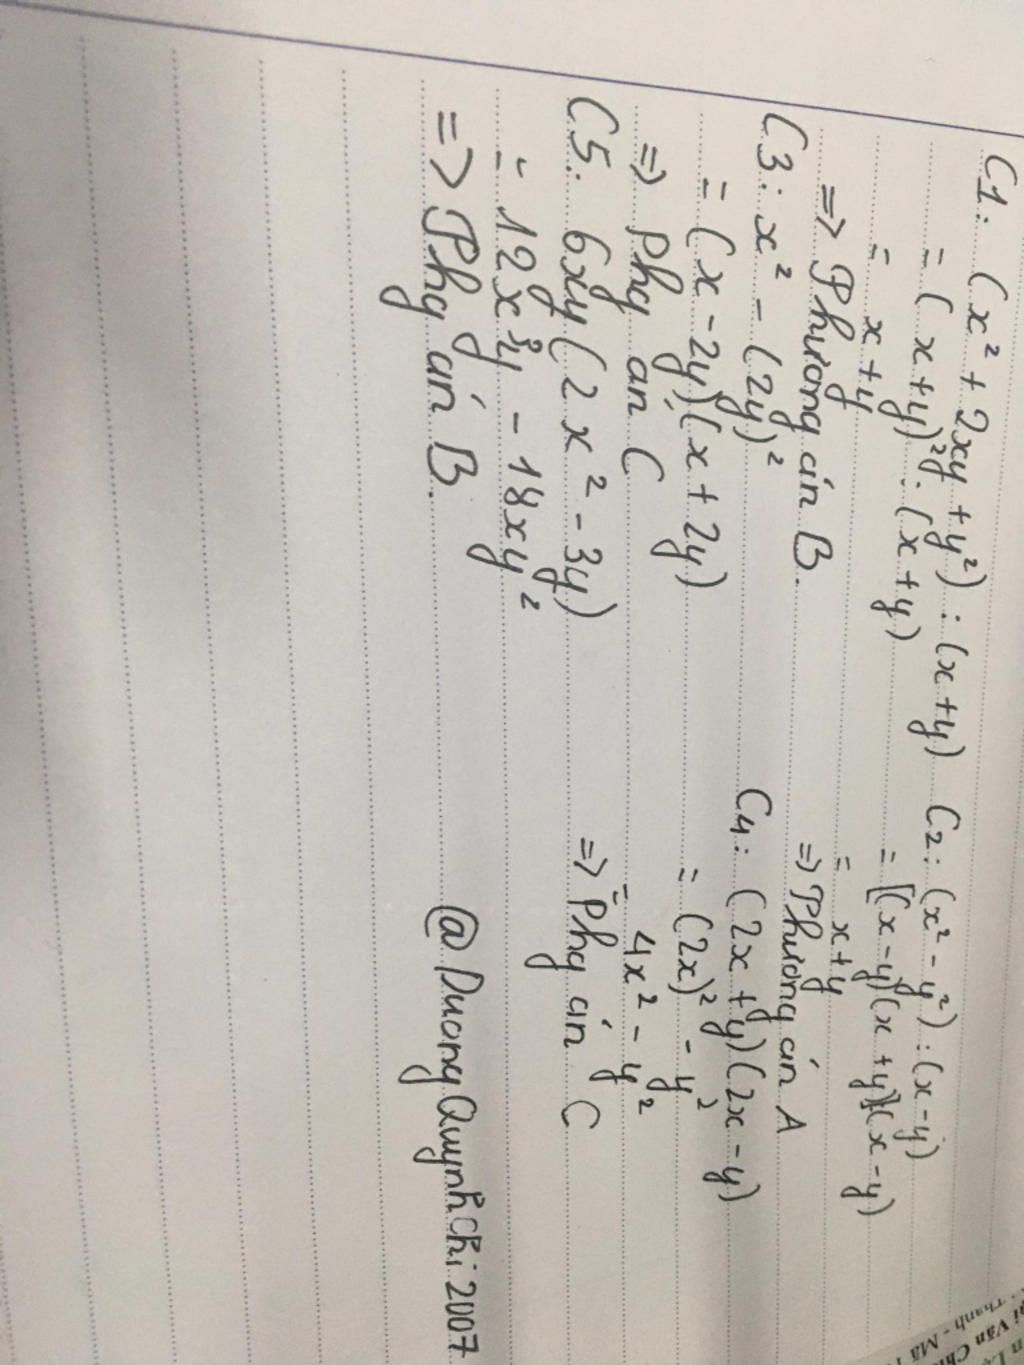 C1: (x² + 2xy + y²) : (x + y)
= (x + y)² : (x + y)
= x + y
=> Phương án B.
C2: (x² - y²) : (x - y)
= [(x - y)(x + y)] : (x - y)
= x + y
=> Phương án A
C3: x² - (2y)²
= (x - 2y)(x + 2y)
=> Phg án C
C4: (2x + y)(2x - y)
= (2x)² - y²
= 4x² - y²
=> Phg án C
C5: 6xy(2x² - 3y)
= 12x³y - 18xy²
=> Phg án B.
@DuongQuynhChi2007